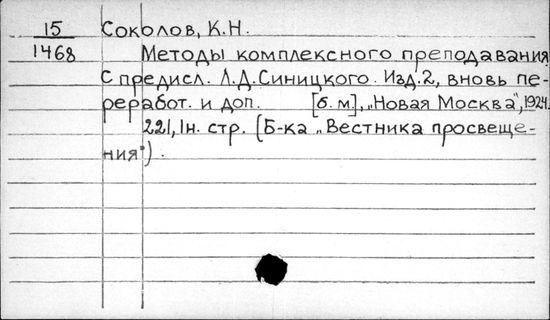 15 Соколов, К.Н.
1468 Методы комплексного преподавания
С предисл. Л.Д.Синицкого. Изд.2, вновь пе-
реработ. и доп. [б.м], „Новая Москва", 1924.
221, 1н. стр. (Б-ка „Вестника просвеще-
ния").